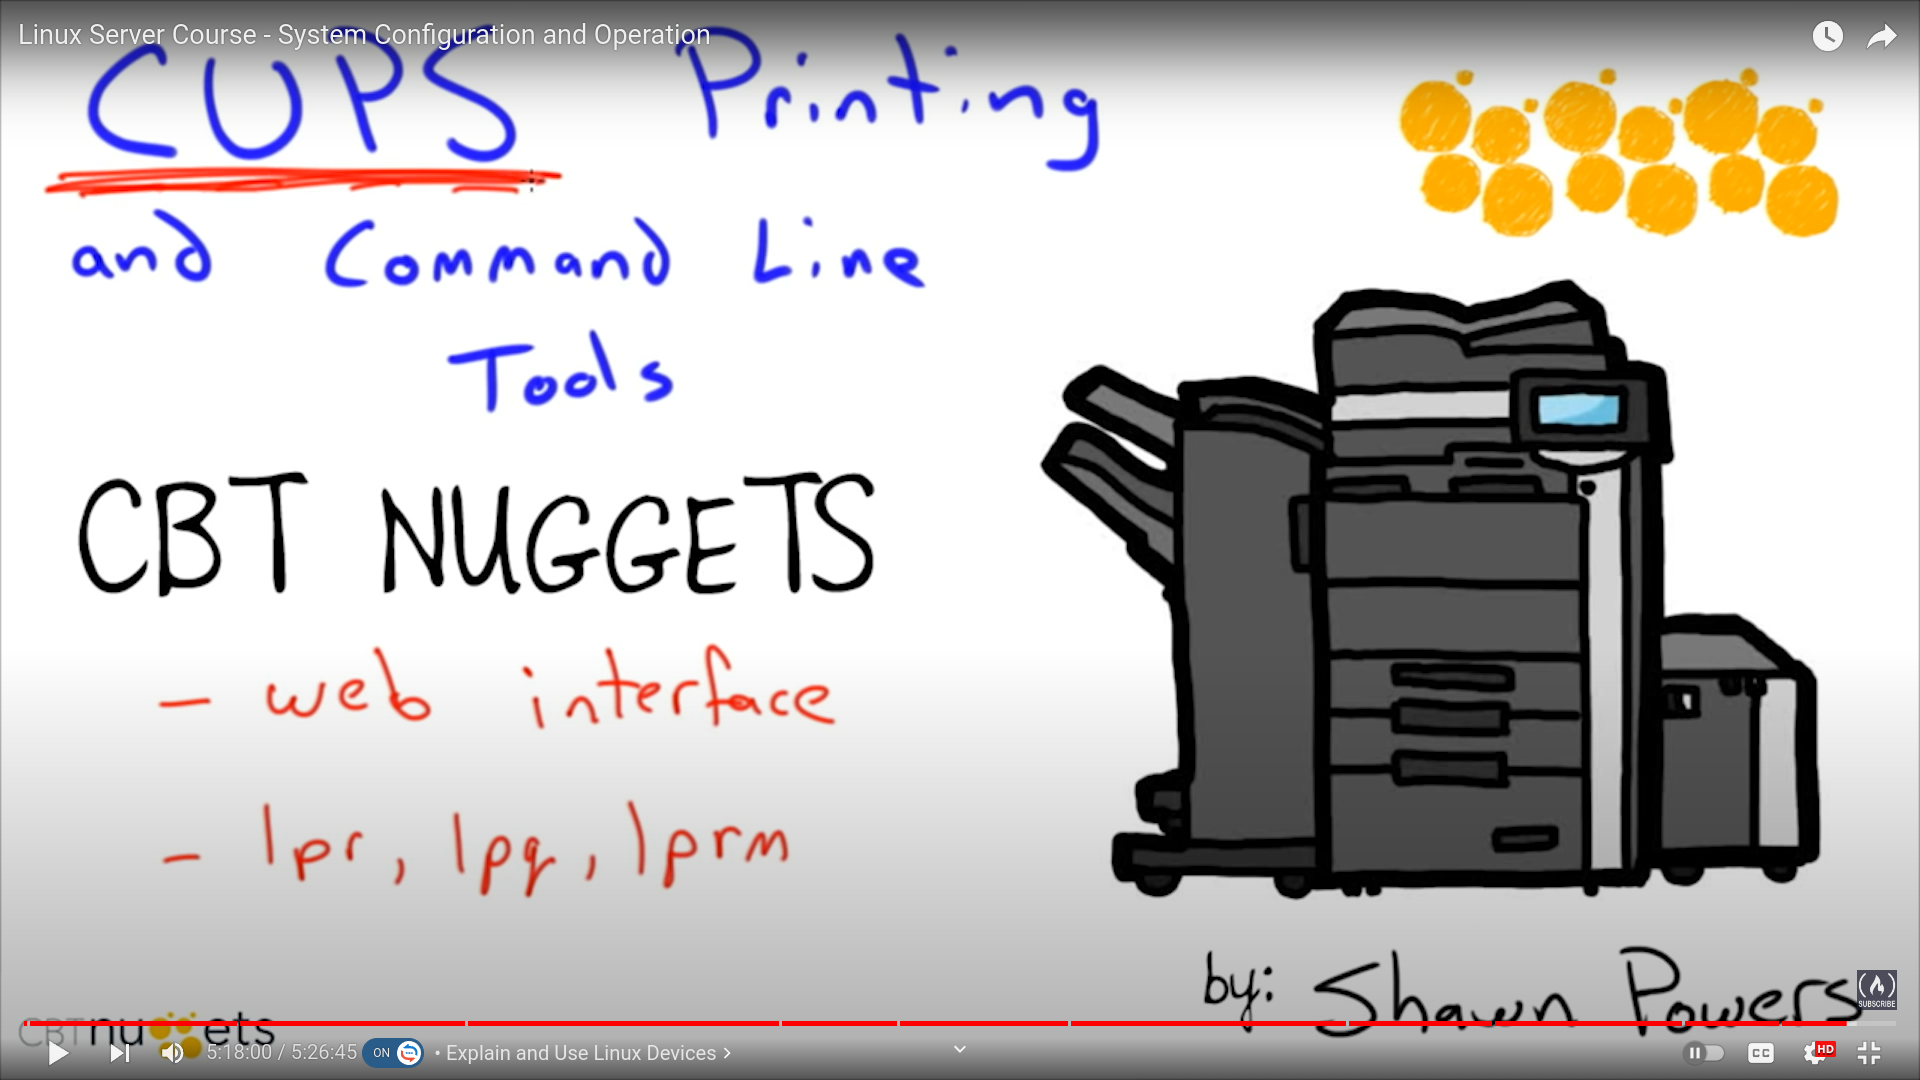 Linux Server Course - System Configuration and Operation
CUPS Printing
and Command Line
Tools
CBT NUGGETS
- web interface
- lpr, lpq, lprm
by: Shawn Powers
SUBSCRIBE
CBTnuggets
5:18:00 / 5:26:45 ON • Explain and Use Linux Devices >
CC HD